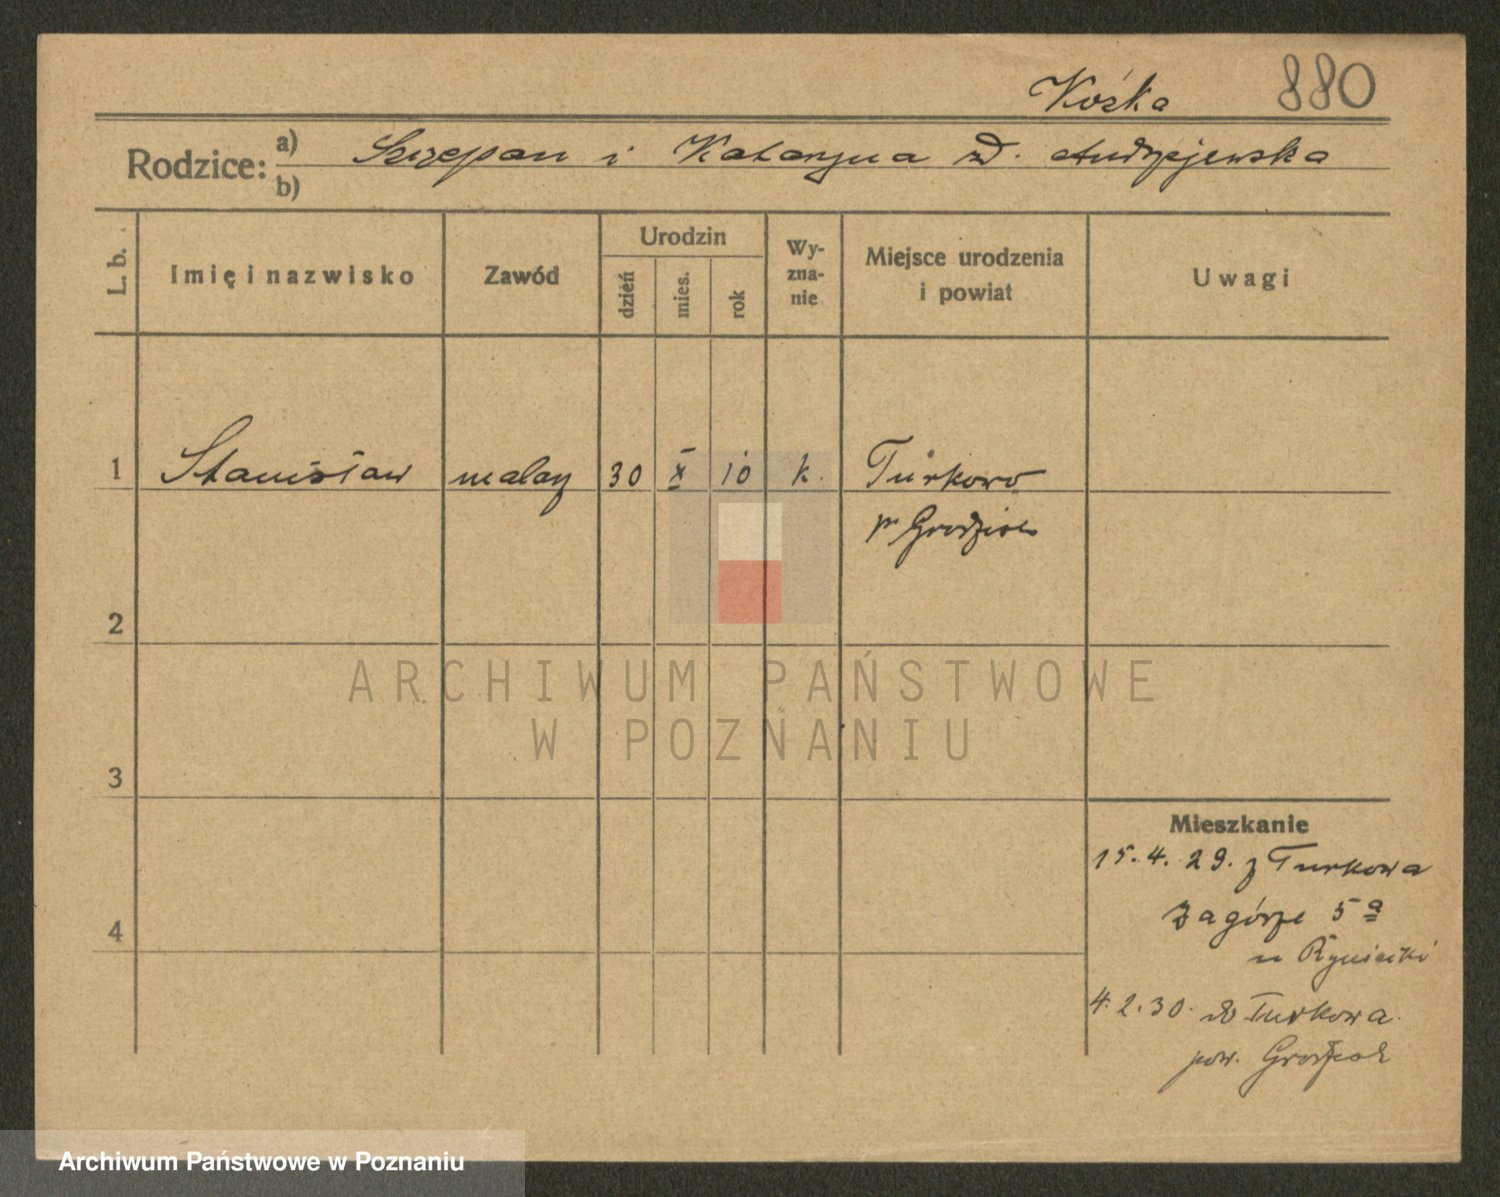 Kośka 880
Rodzice: a) Szczepan i Katarzyna z d. Andrzejewska
b)
L. b. Imię i nazwisko Zawód Urodzin dzień mies. rok Wyznanie Miejsce urodzenia i powiat Uwagi
1 Stanisław malarz 30 X 10 k. Turkowo
p Grodzisk
2
3
4
Mieszkanie
15.4.29. z Turkowa
Zagórze 5a
u
4.2.30. do Turkowa
pow. Grodzisk
ARCHIWUM PAŃSTWOWE
W POZNANIU
Archiwum Państwowe w Poznaniu